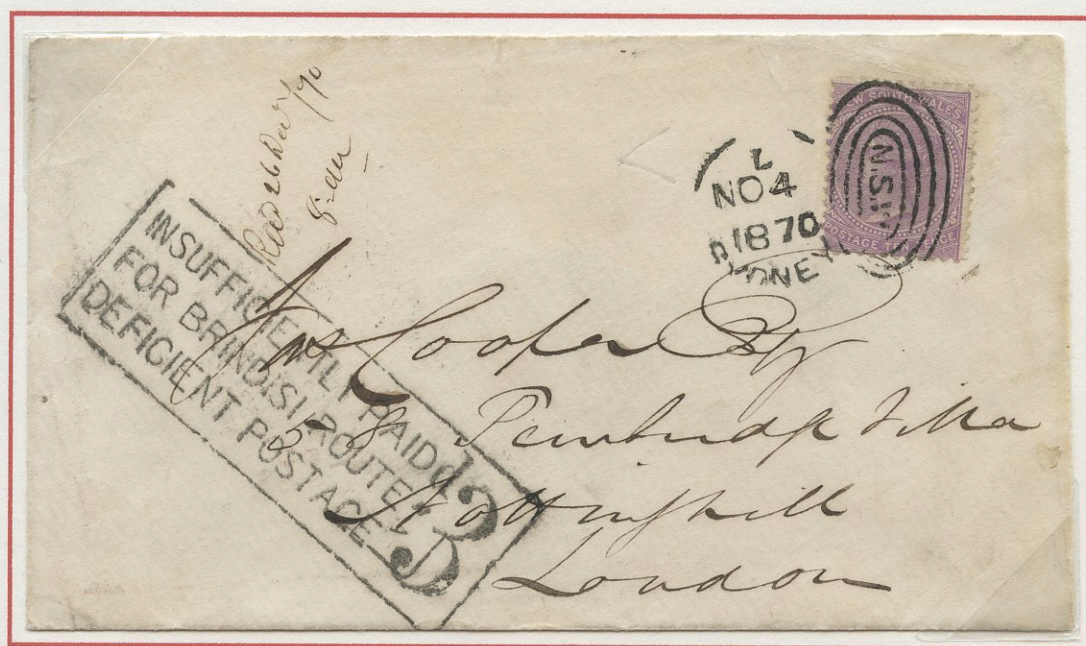 NEW SOUTH WALES
N.S.W
POSTAGE TENPENCE
L
NO 4
1870
SYDNEY
26 Dec /70
INSUFFICIENTLY PAID
FOR BRINDISI ROUTE
DEFICIENT POSTAGE
d3
Cooper Esq
58 Pembridge Villa
Nottinghill
London